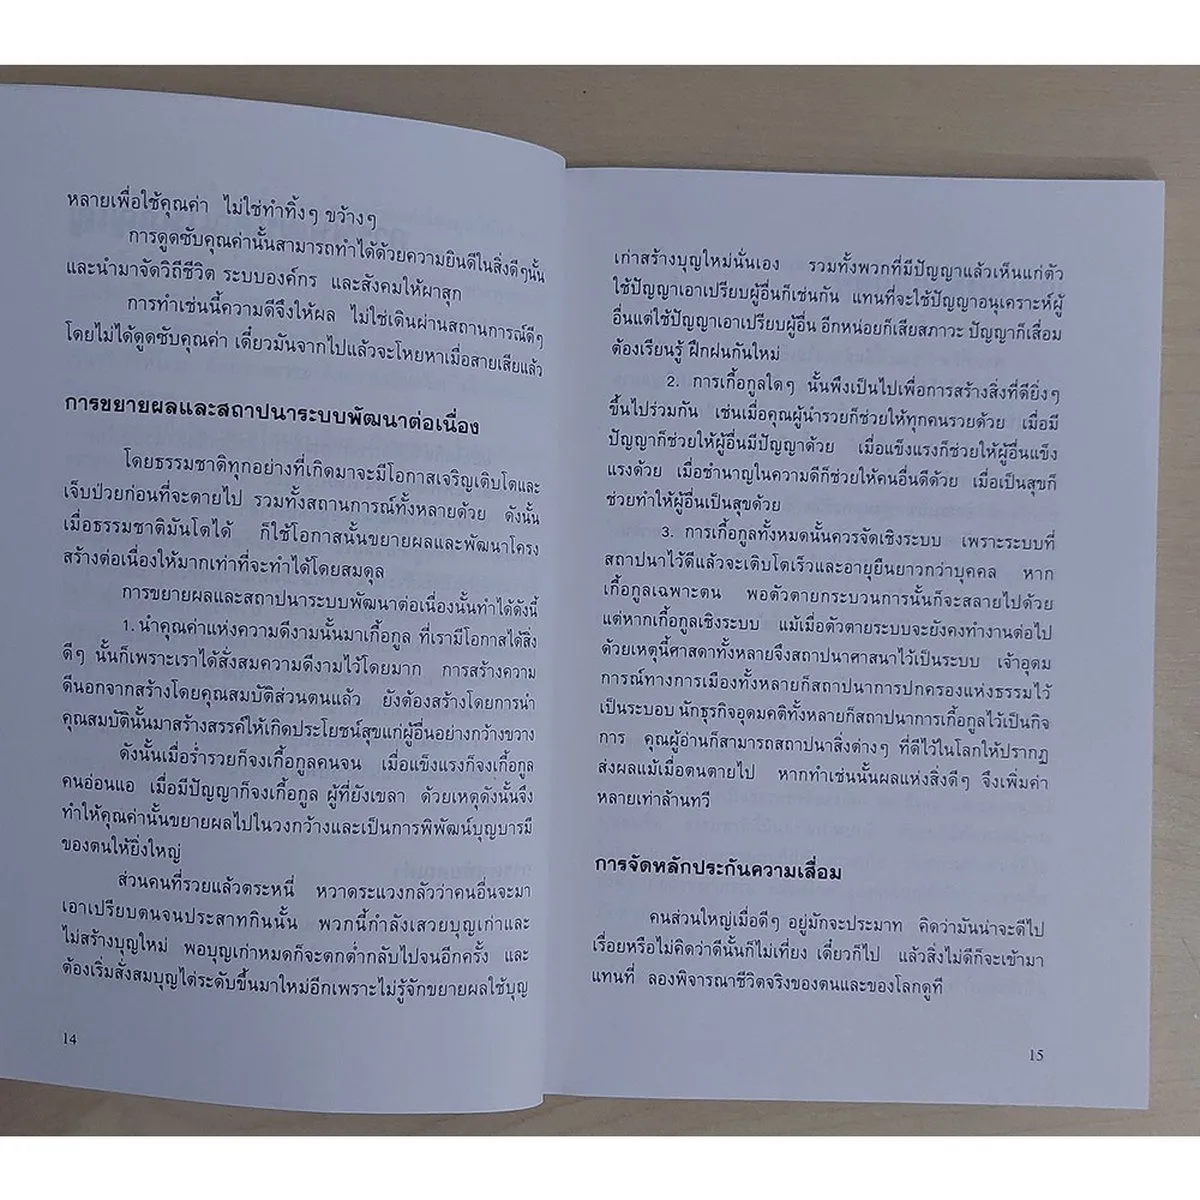 หลายเพื่อใช้คุณค่า ไม่ใช่ทำทิ้งๆ ขว้างๆ
การดูดซับคุณค่านั้นสามารถทำได้ด้วยความยินดีในสิ่งดีๆนั้น
และนำมาจัดวิถีชีวิต ระบบองค์กร และสังคมให้ผาสุก
การทำเช่นนี้ความดีจึงให้ผล ไม่ใช่เดินผ่านสถานการณ์ดีๆ
โดยไม่ได้ดูดซับคุณค่า เดี๋ยวมันจากไปแล้วจะโหยหาเมื่อสายเสียแล้ว
การขยายผลและสถาปนาระบบพัฒนาต่อเนื่อง
โดยธรรมชาติทุกอย่างที่เกิดมาจะมีโอกาสเจริญเติบโตและ
เจ็บป่วยก่อนที่จะตายไป รวมทั้งสถานการณ์ทั้งหลายด้วย ดังนั้น
เมื่อธรรมชาติมันโตได้ ก็ใช้โอกาสนั้นขยายผลและพัฒนาโครง
สร้างต่อเนื่องให้มากเท่าที่จะทำได้โดยสมดุล
การขยายผลและสถาปนาระบบพัฒนาต่อเนื่องนั้นทำได้ดังนี้
1. นำคุณค่าแห่งความดีงามนั้นมาเกื้อกูล ที่เรามีโอกาสได้สิ่ง
ดีๆ นั้นก็เพราะเราได้สั่งสมความดีงามไว้โดยมาก การสร้างความ
ดีนอกจากสร้างโดยคุณสมบัติส่วนตนแล้ว ยังต้องสร้างโดยการนำ
คุณสมบัตินั้นมาสร้างสรรค์ให้เกิดประโยชน์สุขแก่ผู้อื่นอย่างกว้างขวาง
ดังนั้นเมื่อร่ำรวยก็จงเกื้อกูลคนจน เมื่อแข็งแรงก็จงเกื้อกูล
คนอ่อนแอ เมื่อมีปัญญาก็จงเกื้อกูล ผู้ที่ยังเขลา ด้วยเหตุดังนั้นจึง
ทำให้คุณค่านั้นขยายผลไปในวงกว้างและเป็นการพิพัฒน์บุญบารมี
ของตนให้ยิ่งใหญ่
ส่วนคนที่รวยแล้วตระหนี่ หวาดระแวงกลัวว่าคนอื่นจะมา
เอาเปรียบตนจนประสาทกินนั้น พวกนี้กำลังเสวยบุญเก่าและ
ไม่สร้างบุญใหม่ พอบุญเก่าหมดก็จะตกต่ำกลับไปจนอีกครั้ง และ
ต้องเริ่มสั่งสมบุญไต่ระดับขึ้นมาใหม่อีกเพราะไม่รู้จักขยายผลใช้บุญ
14
เก่าสร้างบุญใหม่นั่นเอง รวมทั้งพวกที่มีปัญญาแล้วเห็นแก่ตัว
ใช้ปัญญาเอาเปรียบผู้อื่นก็เช่นกัน แทนที่จะใช้ปัญญาอนุเคราะห์ผู้
อื่นแต่ใช้ปัญญาเอาเปรียบผู้อื่น อีกหน่อยก็เสียสภาวะ ปัญญาก็เสื่อม
ต้องเรียนรู้ ฝึกฝนกันใหม่
2. การเกื้อกูลใดๆ นั้นพึงเป็นไปเพื่อการสร้างสิ่งที่ดียิ่งๆ
ขึ้นไปร่วมกัน เช่นเมื่อคุณผู้นำรวยก็ช่วยให้ทุกคนรวยด้วย เมื่อมี
ปัญญาก็ช่วยให้ผู้อื่นมีปัญญาด้วย เมื่อแข็งแรงก็ช่วยให้ผู้อื่นแข็ง
แรงด้วย เมื่อชำนาญในความดีก็ช่วยให้คนอื่นดีด้วย เมื่อเป็นสุขก็
ช่วยทำให้ผู้อื่นเป็นสุขด้วย
3. การเกื้อกูลทั้งหมดนั้นควรจัดเชิงระบบ เพราะระบบที่
สถาปนาไว้ดีแล้วจะเติบโตเร็วและอายุยืนยาวกว่าบุคคล หาก
เกื้อกูลเฉพาะตน พอตัวตายกระบวนการนั้นก็จะสลายไปด้วย
แต่หากเกื้อกูลเชิงระบบ แม้เมื่อตัวตายระบบจะยังคงทำงานต่อไป
ด้วยเหตุนี้ศาสดาทั้งหลายจึงสถาปนาศาสนาไว้เป็นระบบ เจ้าอุดม
การณ์ทางการเมืองทั้งหลายก็สถาปนาการปกครองแห่งธรรมไว้
เป็นระบอบ นักธุรกิจอุดมคติทั้งหลายก็สถาปนาการเกื้อกูลไว้เป็นกิจ
การ คุณผู้อ่านก็สามารถสถาปนาสิ่งต่างๆ ที่ดีไว้ในโลกให้ปรากฏ
ส่งผลแม้เมื่อตนตายไป หากทำเช่นนั้นผลแห่งสิ่งดีๆ จึงเพิ่มค่า
หลายเท่าล้านทวี
การจัดหลักประกันความเสื่อม
คนส่วนใหญ่เมื่อดีๆ อยู่มักจะประมาท คิดว่ามันน่าจะดีไป
เรื่อยหรือไม่คิดว่าดีนั้นก็ไม่เที่ยง เดี๋ยวก็ไป แล้วสิ่งไม่ดีก็จะเข้ามา
แทนที่ ลองพิจารณาชีวิตจริงของตนและของโลกดูที
15